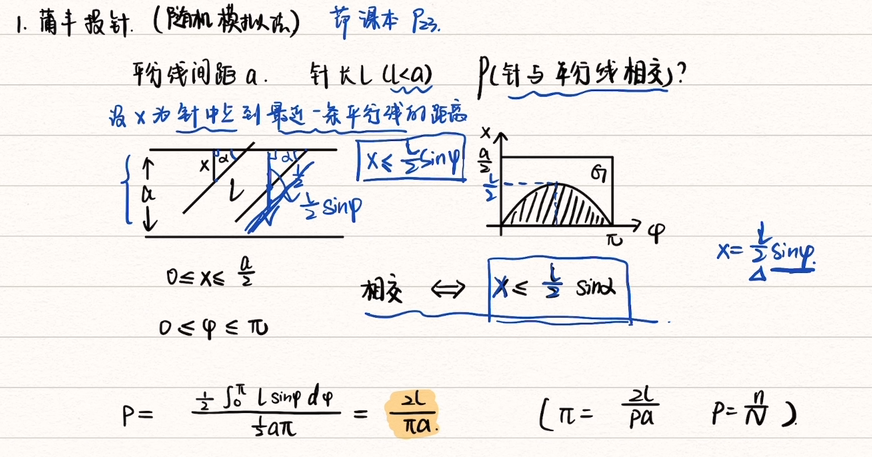 1. 蒲丰投针. (随机模拟法) 节课本 P23.
平行线间距 a. 针长 L (L<a) P(针与平行线相交)?
设 x 为针中点到最近一条平行线的距离
x α L α L/2 L/2 sinφ
a
x ≤ L/2 sinφ
x a/2 L/2 G π φ
x = L/2 sinφ.
0 ≤ x ≤ a/2
相交 ⟺ x ≤ L/2 sinα
0 ≤ φ ≤ π
P = (1/2 ∫₀^π L sinφ dφ) / (1/2 aπ) = 2L/πa. (π = 2L/Pa P = n/N).